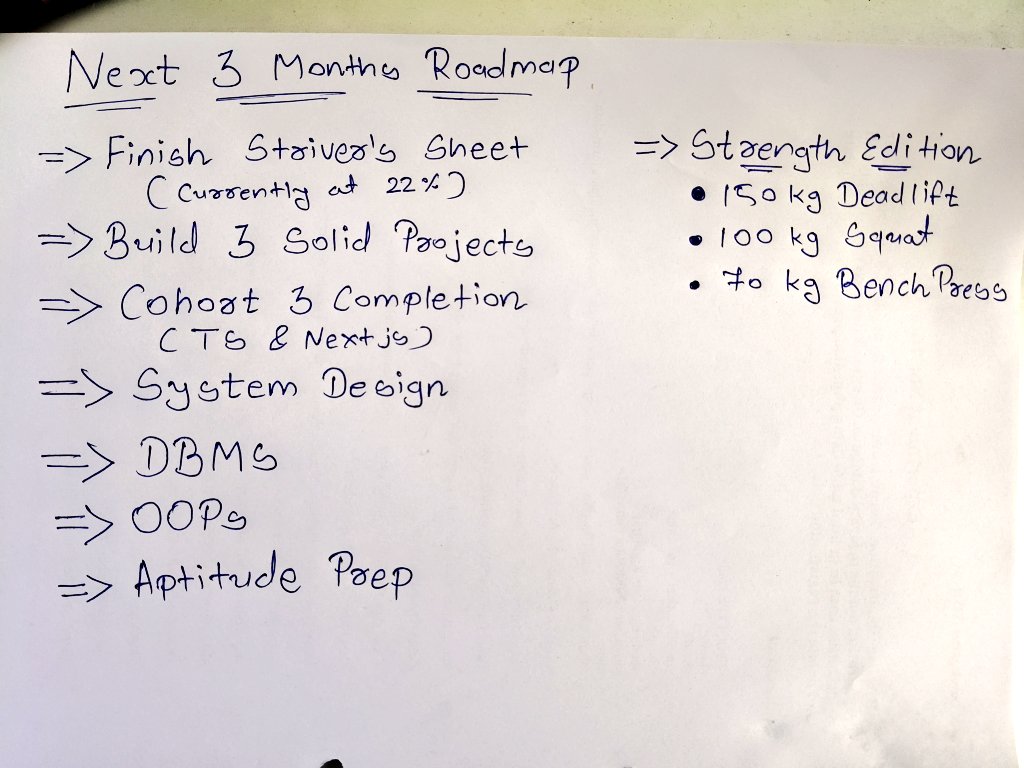 Next 3 Months Roadmap
=> Finish Striver's Sheet
(Currently at 22%)
=> Build 3 Solid Projects
=> Cohort 3 Completion
(TS & Nextjs)
=> System Design
=> DBMS
=> OOPs
=> Aptitude Prep
=> Strength Edition
• 150 kg Deadlift
• 100 kg Squat
• 70 kg Bench Press